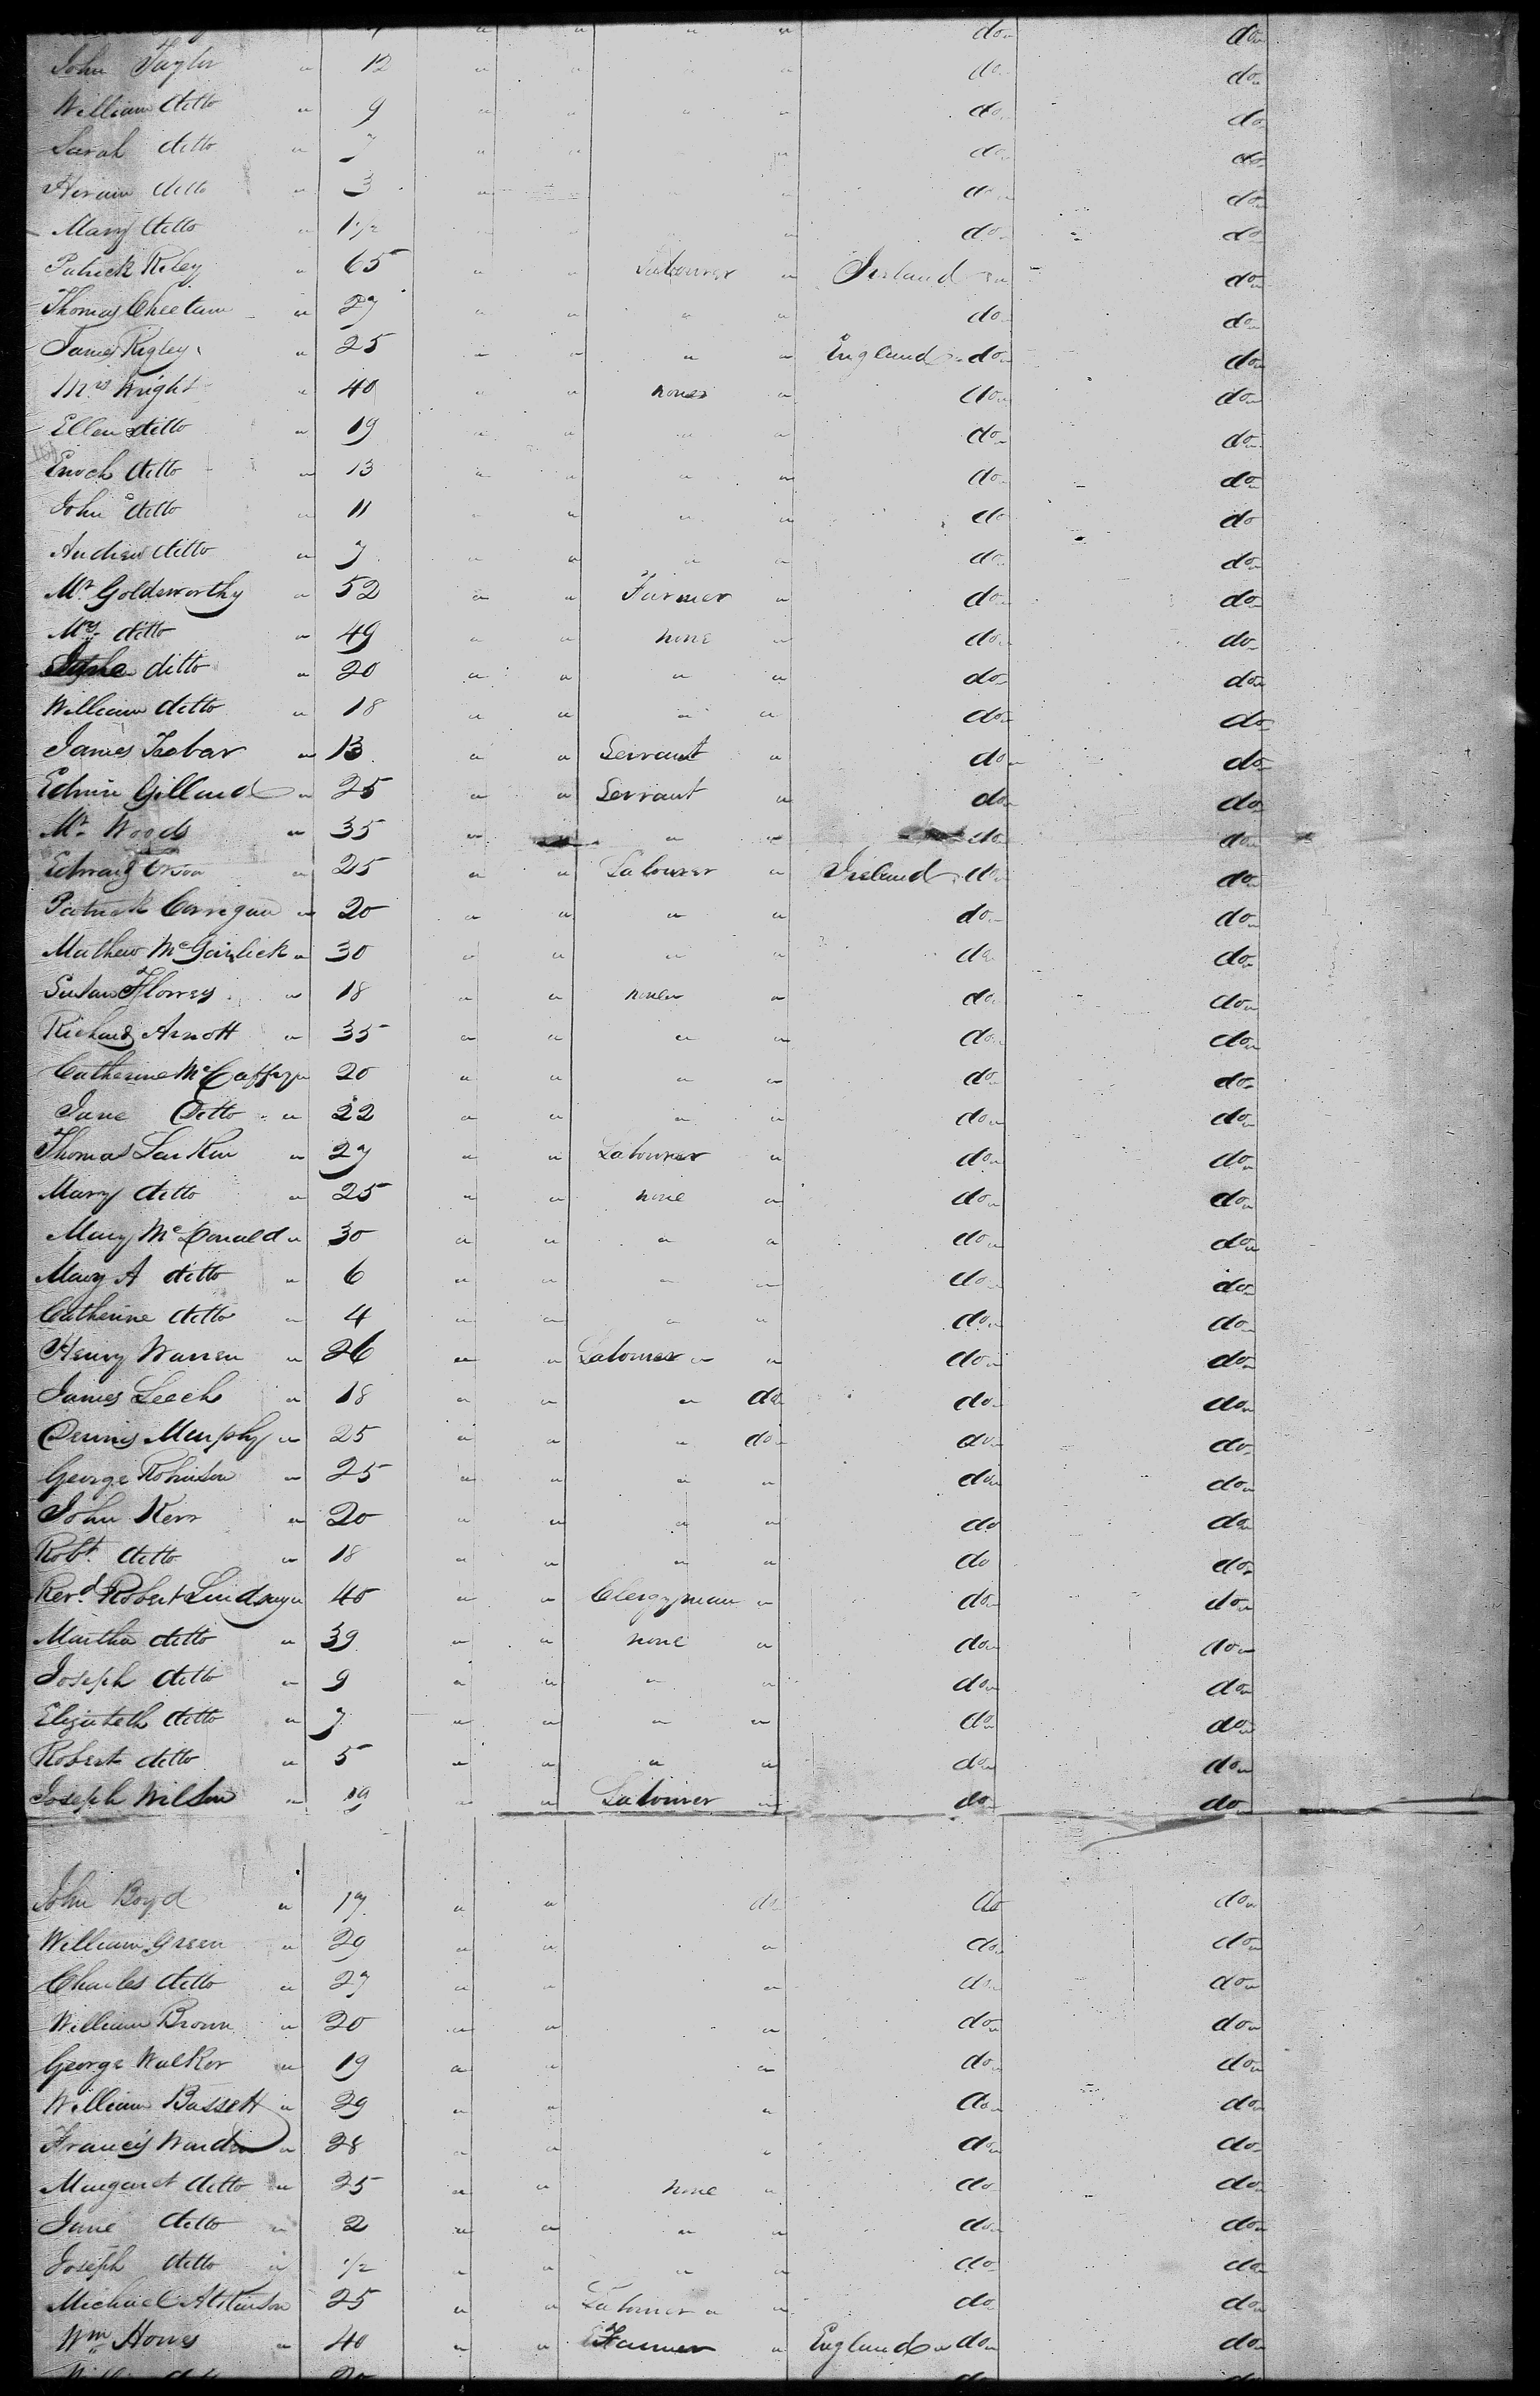 " " " do " do "
John Taylor " 12 " " " " do " do "
William ditto " 9 " " " " do " do "
Sarah ditto " 7 " " " do " do "
Hiram ditto " 3 " " " " do " do "
Mary ditto " 1 1/2 " " " do " do "
Patrick Riley " 65 " " Labourer " Ireland " do "
Thomas Cheetam " 27 " " " " do " do "
James Rigley " 25 " " " " England " do " do "
Mrs Wright " 40 " " none " do " do "
Ellen ditto " 19 " " " " do " do "
Enoch ditto " 13 " " " " do " do "
John ditto " 11 " " " " do do
Andrew ditto " 7 " " " " do " do "
Mr Goldsworthy " 52 " " Farmer " do " do "
Mrs ditto " 49 " " none " do " do "
ditto " 20 " " " " do " do "
William ditto " 18 " " " " do " do
James " 13 " " Servant " do " do "
Edwin Gilland " 25 " " Servant " do " do "
Mr Woods " 35 " " " do " do "
Edward " 25 " " Labourer " Ireland " do " do "
Patrick Corrigan " 20 " " " " do " do "
Mathew " 30 " " " " do " do "
Susan " 18 " " none " " do " do "
Richard Arnott " 35 " " " " do " do "
Catherine McCaffry " 20 " " " " do " do "
Jane Ditto " 22 " " " " do " do "
Thomas Larkin " 27 " " Labourer " do " do "
Mary ditto " 25 " " none " do " do "
Mary McDonald " 30 " " " " do " do "
Mary A ditto " 6 " " " " do " do "
Catherine ditto " 4 " " " " do " do "
Henry Warren " 26 " " Labourer " " do " do "
James Leech " 18 " " " do " do " do "
Dennis Murphy " 25 " " " do " do " do "
George Robinson " 25 " " " " do " do "
John Kerr " 20 " " " " do do "
Robt ditto " 18 " " " " do do "
Revd Robert Lindsay " 40 " " Clergyman " do " do "
Martha ditto " 39 " " none " do " do "
Joseph ditto " 9 " " " " do " do "
Elizabeth ditto " 7 " " " " do " do "
Robert ditto " 5 " " " " do " do "
Joseph Wilson " 19 " " Labourer " do " do "
John Boyd " 17 " " do do do "
William Green " 29 " " " do " do "
Charles ditto " 27 " " " do " do "
William Brown " 20 " " " do " do "
George Walker " 19 " " " do " do "
William Bassett " 29 " " " do " do "
Francis " 28 " " " do " do "
Margaret ditto " 25 " " none " do do "
Jane ditto " 2 " " " " do " do "
Joseph ditto " 1/2 " " " " do do "
Michael Atkinson 25 " " Labourer " " do do "
Wm Hows " 40 " " Farmer " England " do " do "